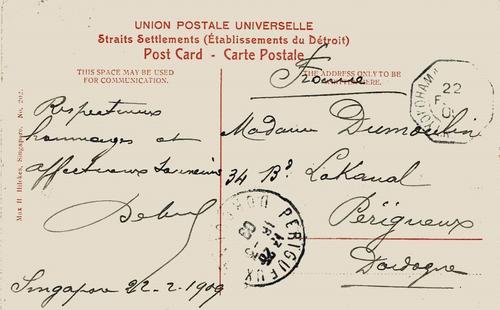 UNION POSTALE UNIVERSELLE
Straits Settlements (Établissements du Détroit)
Post Card - Carte Postale
THIS SPACE MAY BE USED
FOR COMMUNICATION.
THE ADDRESS ONLY TO BE
HERE.
France
YOKOHAMA
22
Respectueux
hommages et
affectueux
Singapore 22-2-1909
Madame Dumoulin
34 Bd Lakanal
Périgueux
Dordogne
PERIGUEUX
Max H. Hilckes, Singapore. No. 202.